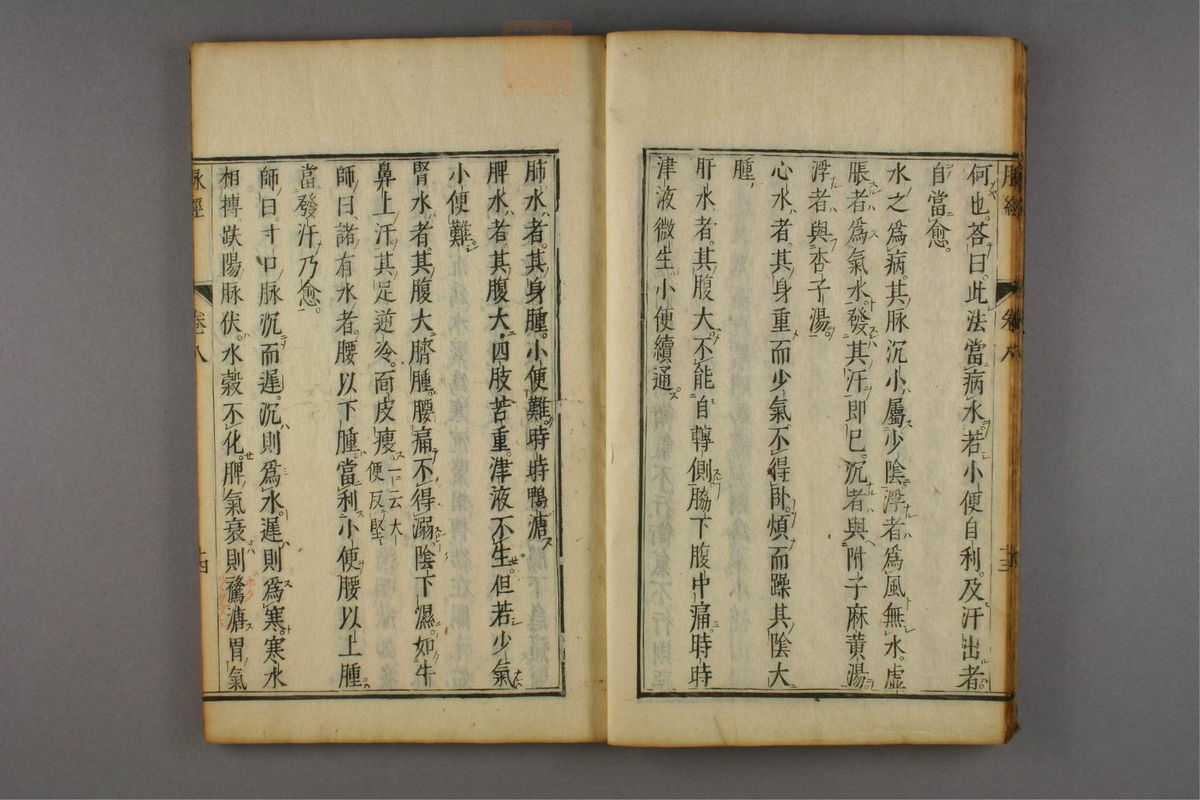 脉經 卷八 十三
何也。荅曰。此法當病水。若小便自利。及汗出者。
自當愈。
水之爲病。其脉沉小。屬少陰。浮者爲風。無水。虚
脹者。爲氣水。發其汗即已。沉者與附子麻黄湯。
浮者。與杏子湯。
心水者。其身重而少氣。不得卧。煩而躁。其陰大
腫。
肝水者。其腹大。不能自轉側。脇下腹中痛。時時
津液微生。小便續通。
肺水者。其身腫。小便難。時時鴨溏。
脾水者。其腹大。四肢苦重。津液不生。但若少氣
小便難。
腎水者。其腹大。臍腫。腰痛。不得溺。陰下濕。如牛
鼻上汗。其足逆冷。面皮瘦。一云大便反堅
師曰。諸有水者。腰以下腫。當利小便。腰以上腫。
當發汗乃愈。
師曰。寸口脉沉而遲。沉則爲水。遲則爲寒。寒水
相搏。趺陽脉伏。水穀不化。脾氣衰則鶩溏。胃氣
脉經 卷八 十四